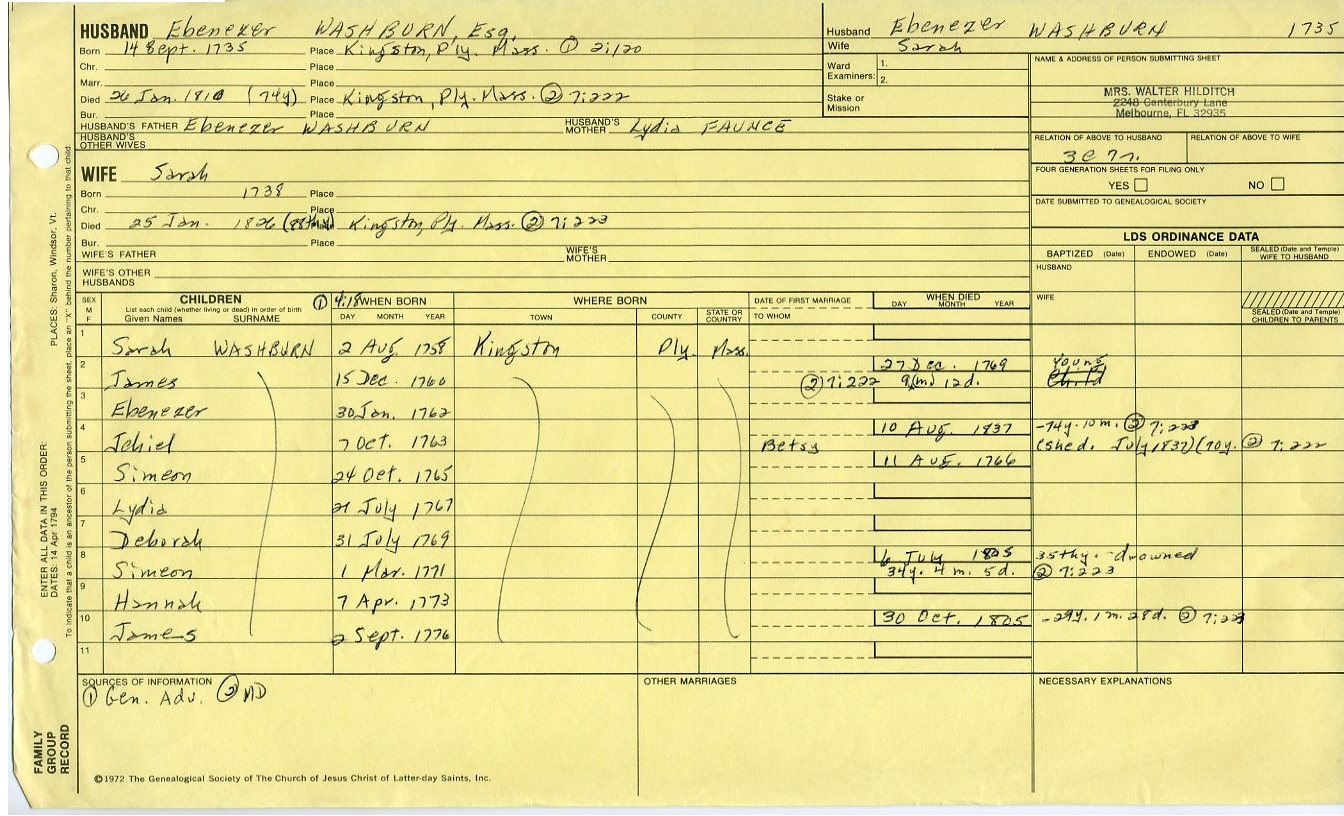 HUSBAND Ebenezer WASHBURN, Esq.
Born 14 Sept. 1735 Place Kingston, Ply. Mass. ① 2:120
Chr. Place
Marr. Place
Died 26 Jan. 1810 (74y) Place Kingston, Ply. Mass. ② 7:222
Bur. Place
HUSBAND'S FATHER Ebenezer WASHBURN HUSBAND'S MOTHER Lydia FAUNCE
HUSBAND'S OTHER WIVES
Husband Ebenezer WASHBURN 1735
Wife Sarah
Ward Examiners: 1.
2.
Stake or Mission
NAME & ADDRESS OF PERSON SUBMITTING SHEET
MRS. WALTER HILDITCH
2248 Canterbury Lane
Melbourne, FL 32935
RELATION OF ABOVE TO HUSBAND RELATION OF ABOVE TO WIFE
FOUR GENERATION SHEETS FOR FILING ONLY
YES NO
DATE SUBMITTED TO GENEALOGICAL SOCIETY
WIFE Sarah
Born 1738 Place
Chr. Place
Died 25 Jan. 1826 Place Kingston, Ply. Mass. ② 7:223
Bur. Place
WIFE'S FATHER WIFE'S MOTHER
WIFE'S OTHER HUSBANDS
LDS ORDINANCE DATA
BAPTIZED (Date) ENDOWED (Date) SEALED (Date and Temple) WIFE TO HUSBAND
HUSBAND
WIFE
SEALED (Date and Temple) CHILDREN TO PARENTS
SEX M F
CHILDREN
List each child (whether living or dead) in order of birth
Given Names SURNAME
① 4:18 WHEN BORN
DAY MONTH YEAR
WHERE BORN
TOWN COUNTY STATE OR COUNTRY
DATE OF FIRST MARRIAGE
TO WHOM
WHEN DIED
DAY MONTH YEAR
1 Sarah WASHBURN 2 Aug 1758 Kingston Ply. Mass.
2 James 15 Dec. 1760 27 Dec. 1769 Young Child
② 7:222 9(m) 12d.
3 Ebenezer 30 Jan. 1762
4 Jehiel 7 Oct. 1763 Betsy 10 Aug. 1837 -74y. 10m. ② 7:223
(she d. July 1837) (70y. ② 7:222
5 Simeon 24 Oct. 1765 11 Aug. 1766
6 Lydia 21 July 1767
7 Deborah 31 July 1769
8 Simeon 1 Mar. 1771 6 July 1805 35thy. - drowned
34y. 4m. 5d. ② 7:223
9 Hannah 7 Apr. 1773
10 James 2 Sept. 1776 30 Oct. 1805 -29y. 1m. 28d. ② 7:223
11
SOURCES OF INFORMATION
① Gen. Adv. ② MD
OTHER MARRIAGES
NECESSARY EXPLANATIONS
©1972 The Genealogical Society of The Church of Jesus Christ of Latter-day Saints, Inc.
FAMILY GROUP RECORD
ENTER ALL DATA IN THIS ORDER:
DATES: 14 Apr 1794
PLACES: Sharon, Windsor, Vt.
To indicate that a child is an ancestor of the person submitting the sheet, place an "X" behind the number pertaining to that child.